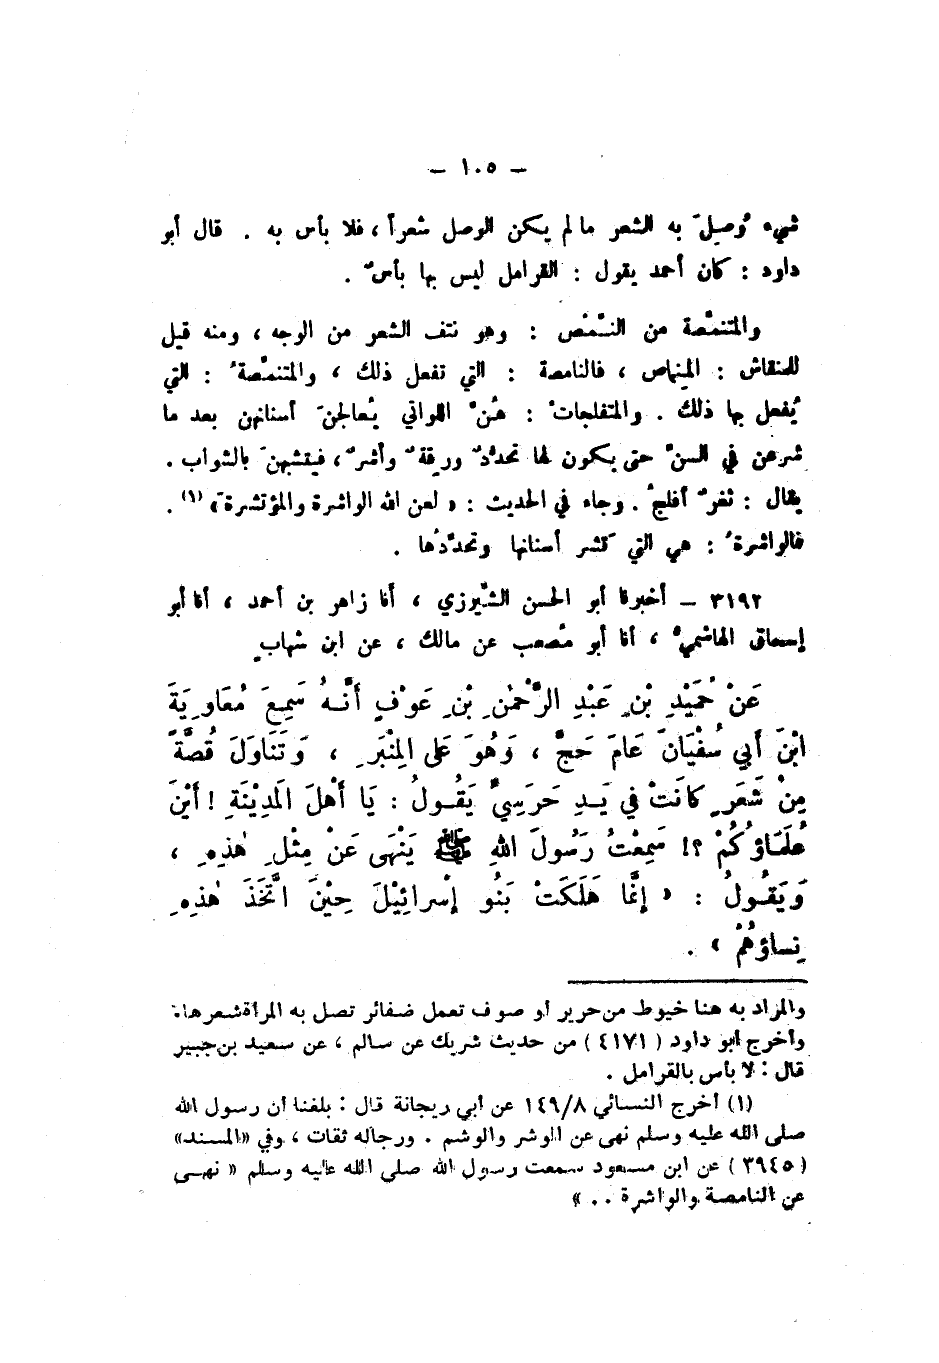 - ١٠٥ -
شيء وُصِلَ به الشعر ما لم يكن الوصل شعراً ، فلا بأس به . قال أبو
داود : كان أحمد يقول : القرامل ليس بها بأسٌ .
والمتنمِّصة من النَّمْص : وهو نتف الشعر من الوجه ، ومنه قيل
للمنقاش : المِنماص ، فالنامصة : التي تفعل ذلك ، والمتنمِّصةُ : التي
يُفعل بها ذلك . والمتفلجاتُ : هُنَّ اللواتي يُعالجنَ أسنانهن بعد ما
شرعن في السنِّ حتى يكون لها تحدُّدٌ ورِقةٌ وأشرٌ ، فيتشبهنَ بالشواب .
يقال : ثغرٌ أفلجُ . وجاء في الحديث : « لعن الله الواشرة والمؤتشرة » (١) .
فالواشرةُ : هي التي تَشر أسنانها وتحدِّدُها .
٣١٩٢ - أخبرنا أبو الحسن الشِّيرزي ، أنا زاهر بن أحمد ، أنا أبو
إسحاق الهاشميُّ ، أنا أبو مُصعب عن مالك ، عن ابن شهابٍ
عَنْ حُمَيْدِ بْنِ عَبْدِ الرَّحْمٰنِ بْنِ عَوْفٍ أَنَّهُ سَمِعَ مُعَاوِيَةَ
ابْنَ أَبِي سُفْيَانَ عَامَ حَجَّ ، وَهُوَ عَلَى المِنْبَرِ ، وَتَنَاوَلَ قُصَّةً
مِنْ شَعَرٍ كَانَتْ فِي يَدِ حَرَسِيٍّ يَقُولُ : يَا أَهْلَ المَدِيْنَةِ ! أَيْنَ
عُلَمَاؤُكُمْ ؟! سَمِعْتُ رَسُولَ اللهِ ﷺ يَنْهَى عَنْ مِثْلِ هٰذِهِ ،
وَيَقُولُ : « إِنَّمَا هَلَكَتْ بَنُو إِسْرائِيْلَ حِيْنَ اتَّخَذَ هٰذِهِ
نِساؤُهُمْ » .
والمراد به هنا خيوط من حرير أو صوف تعمل ضفائر تصل به المرأة شعرها.
وأخرج أبو داود ( ٤١٧١ ) من حديث شريك عن سالم ، عن سعيد بن جبير
قال : لا بأس بالقرامل .
(١) أخرج النسائي ١٤٩/٨ عن أبي ريحانة قال : بلغنا أن رسول الله
صلى الله عليه وسلم نهى عن الوشر والوشم . ورجاله ثقات ، وفي « المسند »
( ٣٩٤٥ ) عن ابن مسعود سمعت رسول الله صلى الله عليه وسلم « نهى
عن النامصة والواشرة .. »